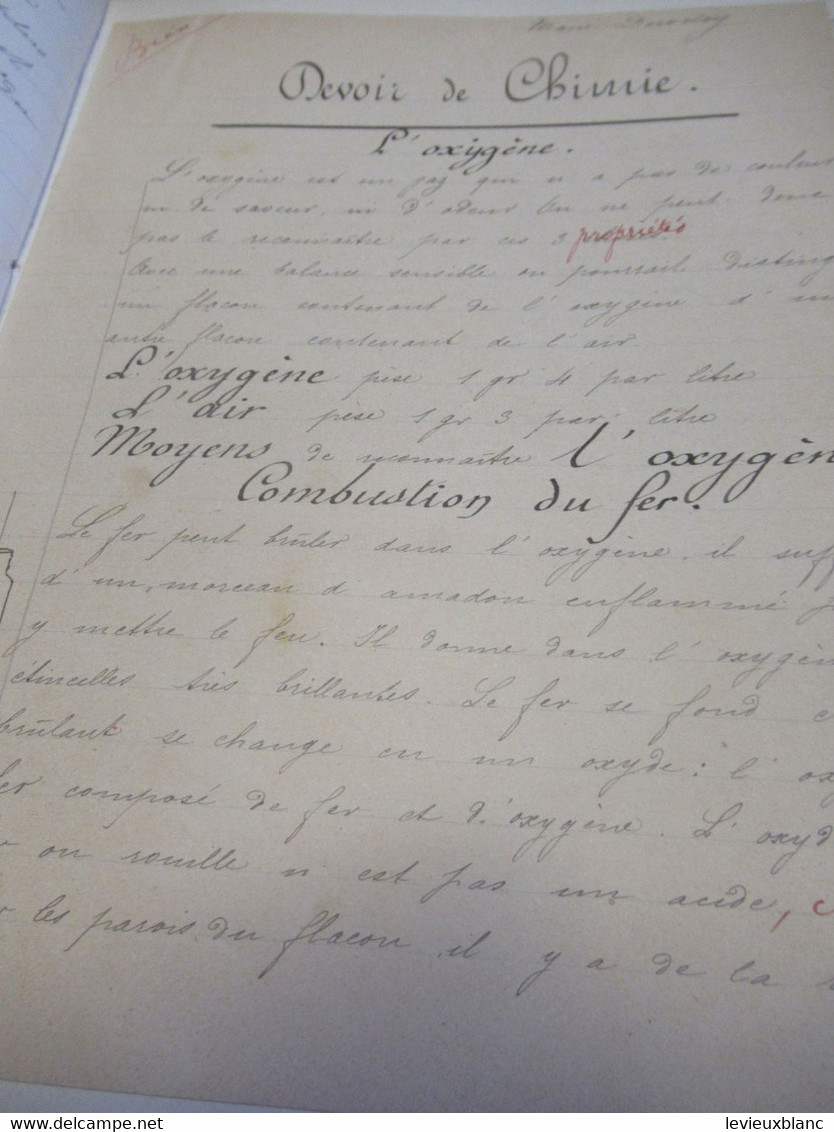 Bien
Marie
Devoir de Chimie.
L'oxygène.
L'oxygène est un gaz qui n'a pas de couleur
ni de saveur, ni d'odeur On ne peut donc
pas le reconnaître par ces 3 propriétés
Avec une balance sensible on pourrait disting
un flacon contenant de l'oxygène d'un
autre flacon contenant de l'air
L'oxygène pèse 1 gr 4 par litre
L'air pèse 1 gr 3 par litre
Moyens de reconnaître l'oxygèn
Combustion du fer.
Le fer peut brûler dans l'oxygène. il suff
d'un morceau d'amadou enflammé
y mettre le feu. Il donne dans l'oxygèn
étincelles très brillantes. Le fer se fond e
brûlant se change en un oxyde: l'ox
fer composé de fer et d'oxygène. L'oxyd
ou rouille n'est pas un acide, c
les parois du flacon il y a de la
www.delcampe.net
levieuxblanc